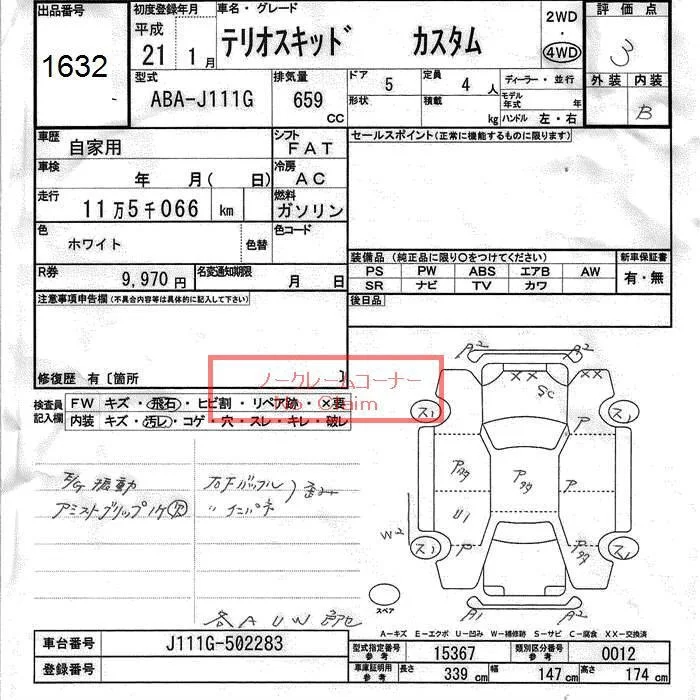 出品番号
1632
初度登録年月
平成
21 1月
車名・グレード
テリオスキッド カスタム
2WD
・
4WD
評価点
3
外装 内装
B
型式
ABA-J111G
排気量
659
CC
ドア
5
定員
4 人
形状
積載
kg
ディーラー・並行
モデル年式 年
ハンドル 左・右
車歴
自家用
シフト
FAT
車検
年 月( 日)
冷房
AC
走行
11万5千066 km
燃料
ガソリン
色
ホワイト
色替
色コード
R券
9,970円
名変通知期限
月 日
セールスポイント(正常に機能するものに限ります)
装備品(純正品に限り○をつけてください)
新車保証書
PS PW ABS エアB AW
SR ナビ TV カワ
有・無
後日品
注意事項申告欄(不具合内容等は具体的に記入して下さい)
修復歴 有〔箇所 〕
ノークレームコーナー
No Claim
検査員記入欄
FW キズ・飛石・ヒビ割・リペア跡・×要
内装 キズ・汚レ・コゲ・穴・スレ・キレ・破レ
E/G振動
アシストグリップハケ穴
各AUW
A2 A2
XX XX
SC
ス1 ス1
P P P
U1
W2
ス1 P P ス1
A1 A2
スペア
A-キズ E-エクボ U-凹み W-補修跡 S-サビ C-腐食 XX-交換済
車台番号
J111G-502283
登録番号
型式指定番号 参考
15367
類別区分番号 参考
0012
車庫証明用 参考
長さ 339 cm 幅 147 cm 高さ 174 cm